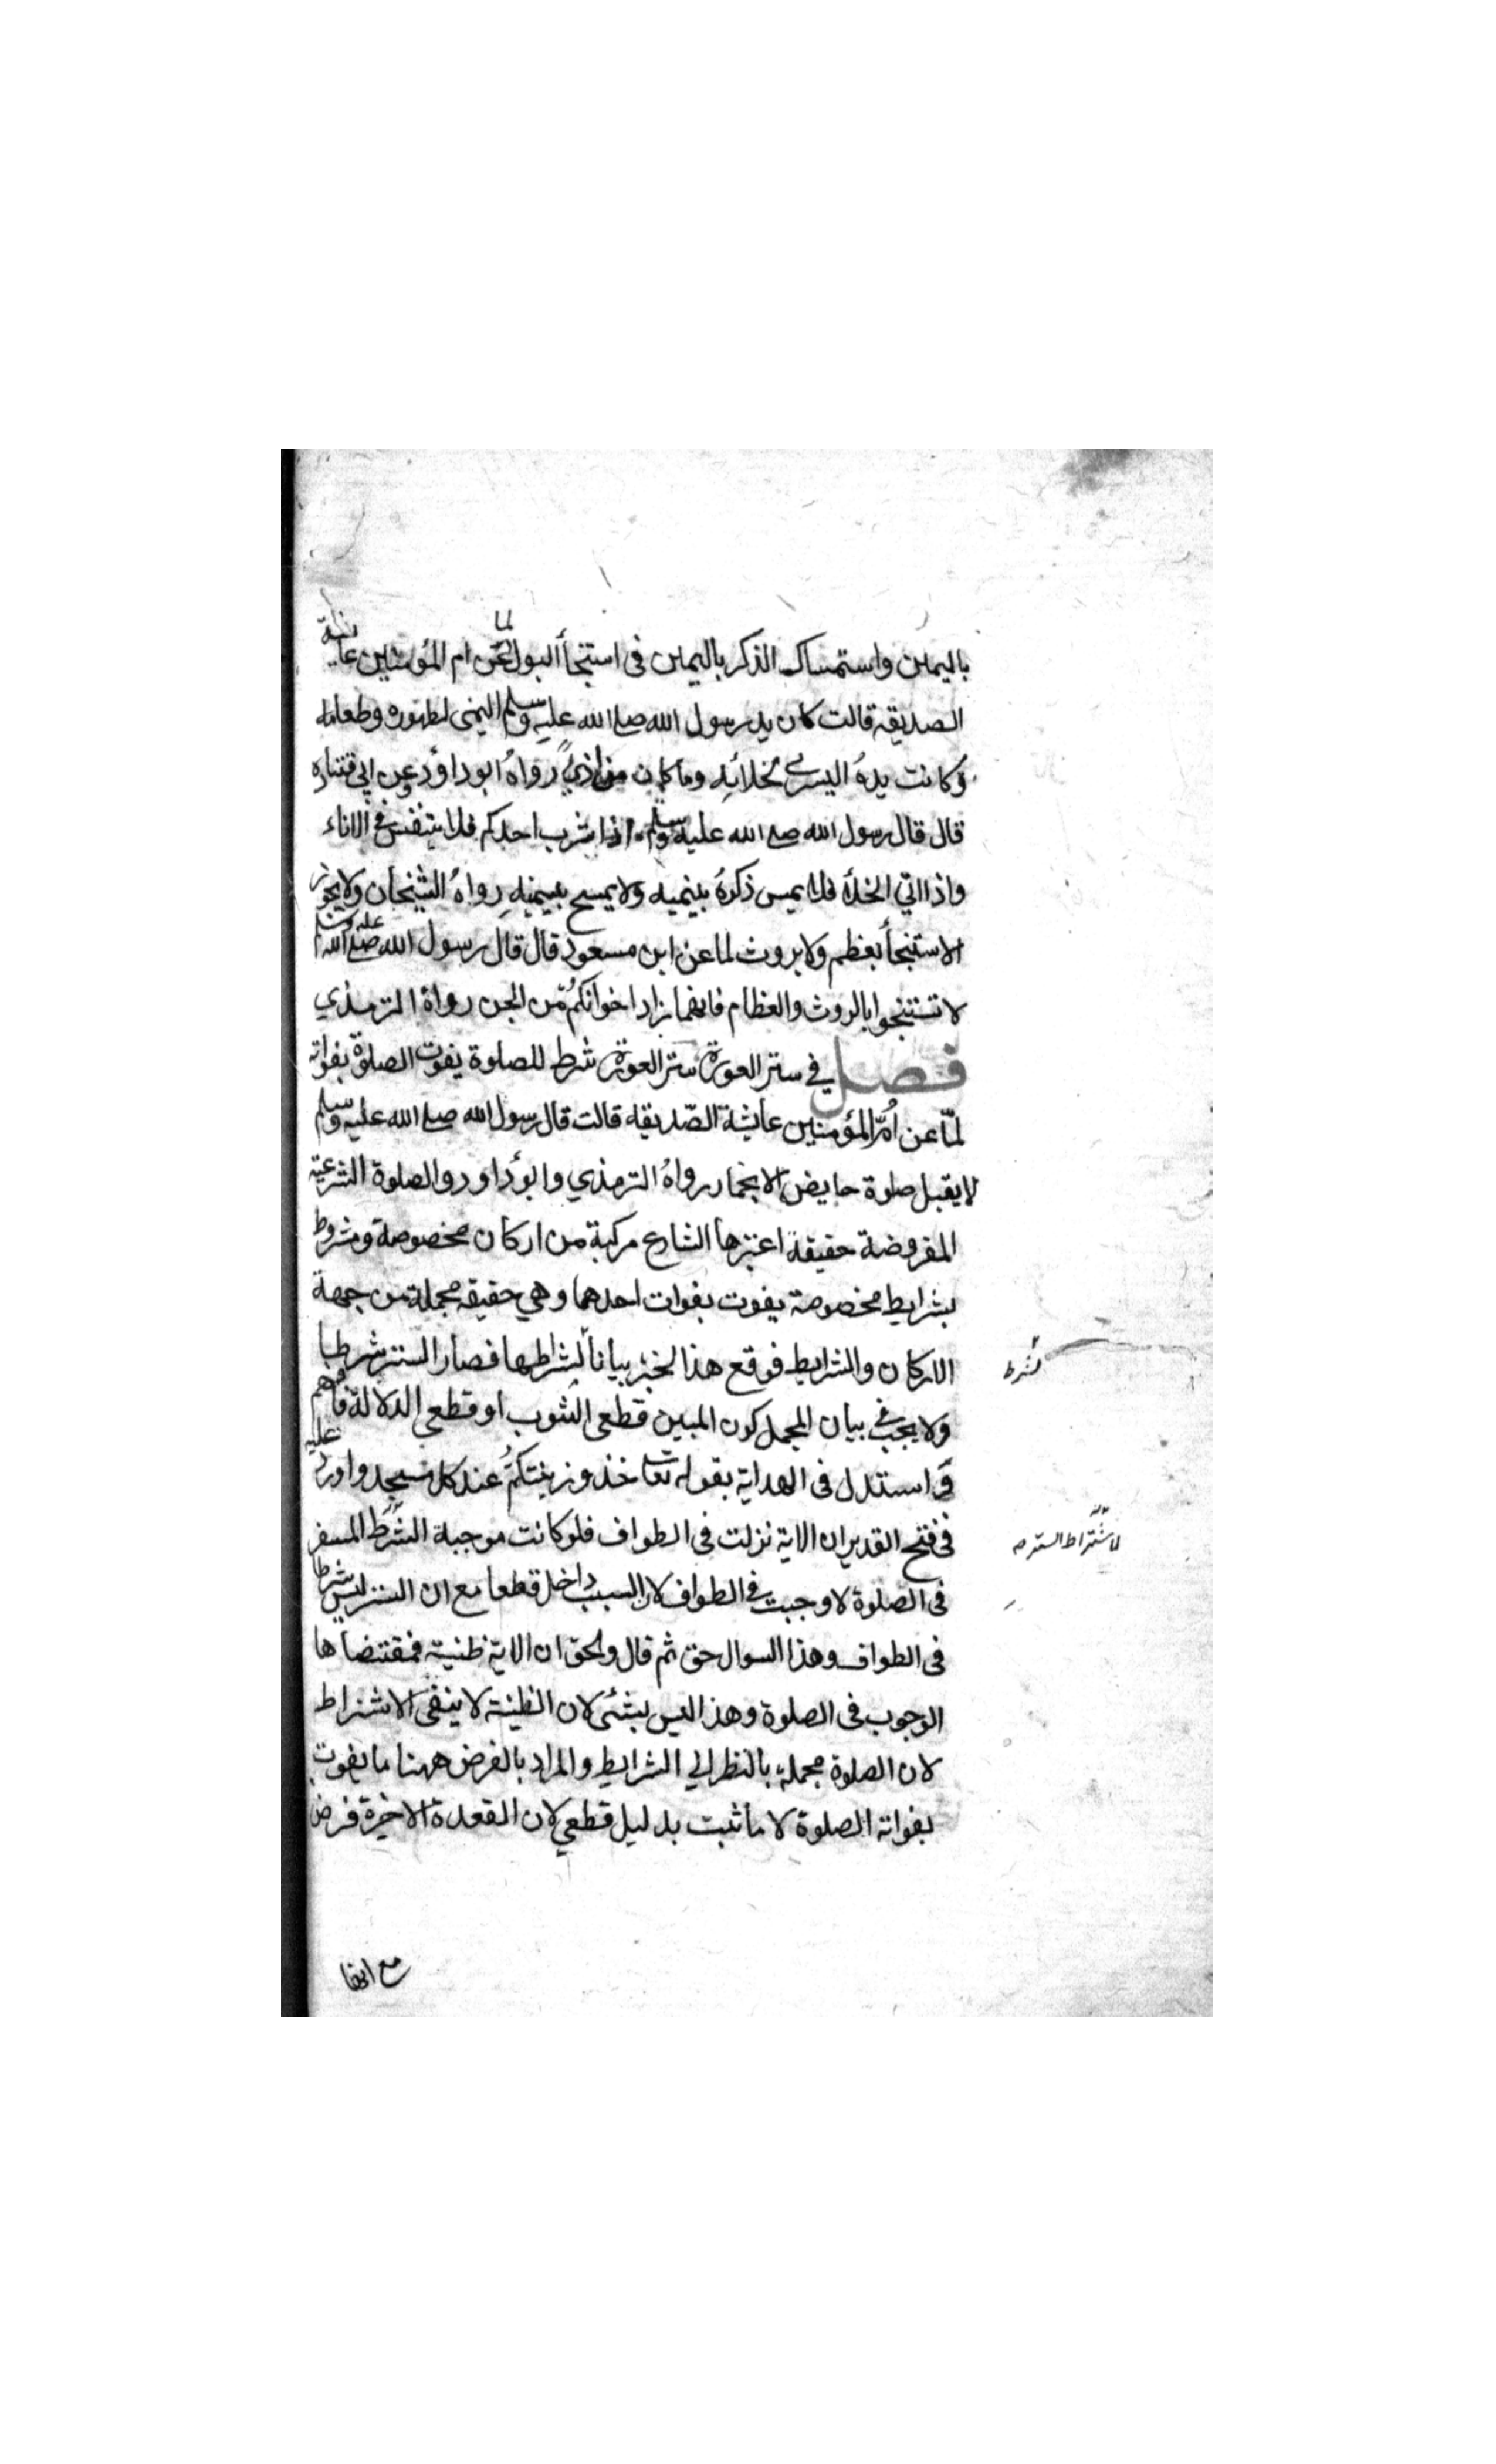 باليمين واستمساك الذكر باليمين فى استنجأ البول لما عن ام المؤمنين عايشة
الصديقه قالت كان يد رسول الله صلى الله عليه وسلم اليمنى لطهوره وطعامه
وكانت يدهُ اليسرى لخلائِه وما كان من اذىً رواهُ ابو داؤد وعن ابى قتادة
قال قال رسول الله صلى الله عليه وسلم اذا شرب احدكم فلا يتنفس فى الاناء
واذا اتي الخلأ فلا يمس ذكرهُ بيمينه ولا يمسح بيمينهِ رواهُ الشيخان ولا يجوز
الاستنجأ بعظم ولا بروث لما عن ابن مسعود قال قال رسول الله صلى الله عليه وسلم
لا تستنجوا بالروث والعظام فانهما زاد اخوانكُم من الجن رواهُ الترمذي
فصل في ستر العورة ستر العورة شرط للصلوة يفوت الصلوة بفواته
لمّا عن اُمّ المؤمنين عايشة الصّديقه قالت قال رسول الله صلى الله عليه وسلم
لا يقبل صلوة حايض الا بخمار رواهُ الترمذي وابو داود والصلوة الشرعية
المفروضة حقيقة اعتبرها الشارع مركبة من اركان مخصوصة ومشروط
بشرايط مخصوصة يفوت بفوات احدهما وهي حقيقه مجملة من جهة
الاركان والشرايط فوقع هذا الخبر بياناً لشراطها فصار الستر شرطا
ولا يجب فى بيان المجمل كون المبين قطعى الثبوت او قطعي الدلالة فافهم
واستدل فى الهداية بقوله تعا خذوا زينتكُم عند كل مسجد واورد عليه
فى فتح القدير ان الاية نزلت فى الطواف فلو كانت موجبة الشرط الستر
فى الصلوة لاوجبت فى الطواف لان السبب داخل قطعا مع ان الستر ليس شرطا
فى الطواف وهذا السوال حق ثم قال والحق ان الاية ظنية فمقتضاها
الوجوب فى الصلوة وهذا ليس بشئى لان الظنية لا ينفى الاشتراط
لان الصلوة مجملة بالنظر الي الشرايط والمراد بالفرض ههنا ما يفوت
بفواته الصلوة لا ما ثبت بدليل قطعي لان القعدة الاخيرة فرض
لشرط
لاشتراط الستر صه
مع انها